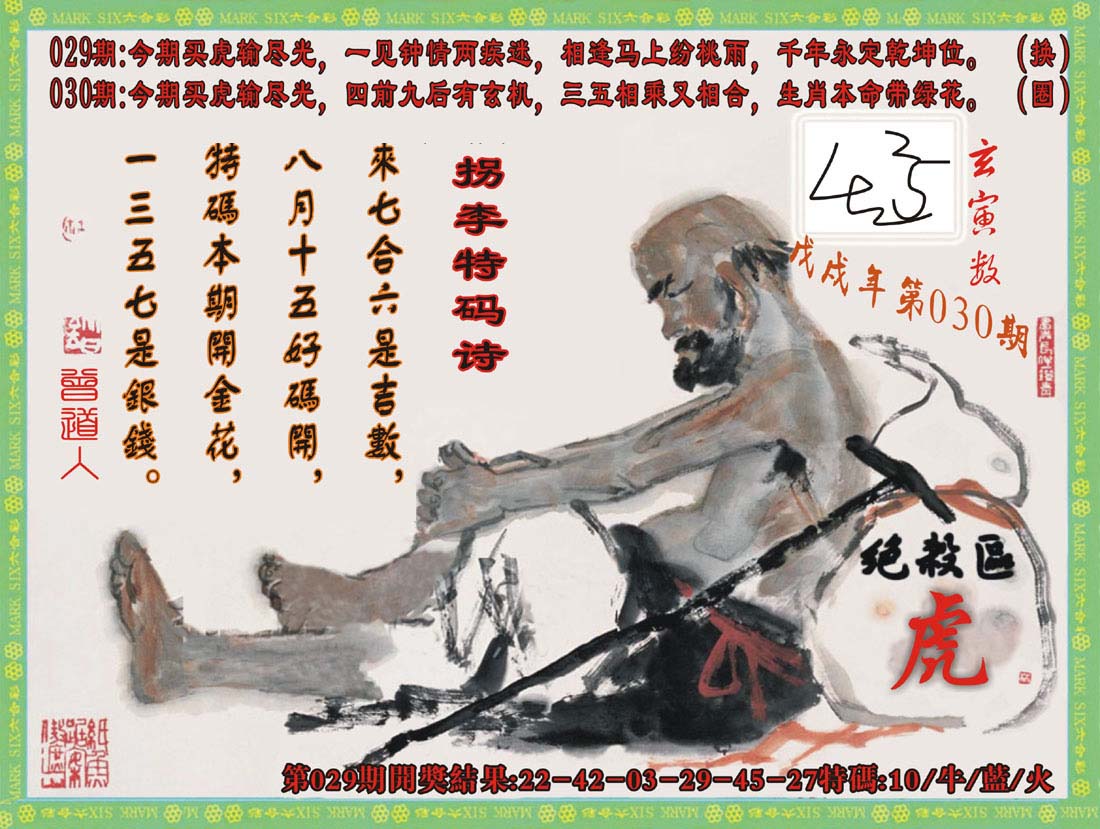 MARK SIX六合彩
029期:今期买虎输尽光，一见钟情两疾迷，相逢马上纷桃雨，千年永定乾坤位。（换）
030期:今期买虎输尽光，四前九后有玄机，三五相乘又相合，生肖本命带绿花。（圈）
玄寅数
戊戌年第030期
拐李特码诗
來七合六是吉數，
八月十五好碼開，
特碼本期開金花，
一三五七是銀錢。
曾道人
绝殺區
虎
第029期開獎結果:22-42-03-29-45-27特碼:10/牛/藍/火